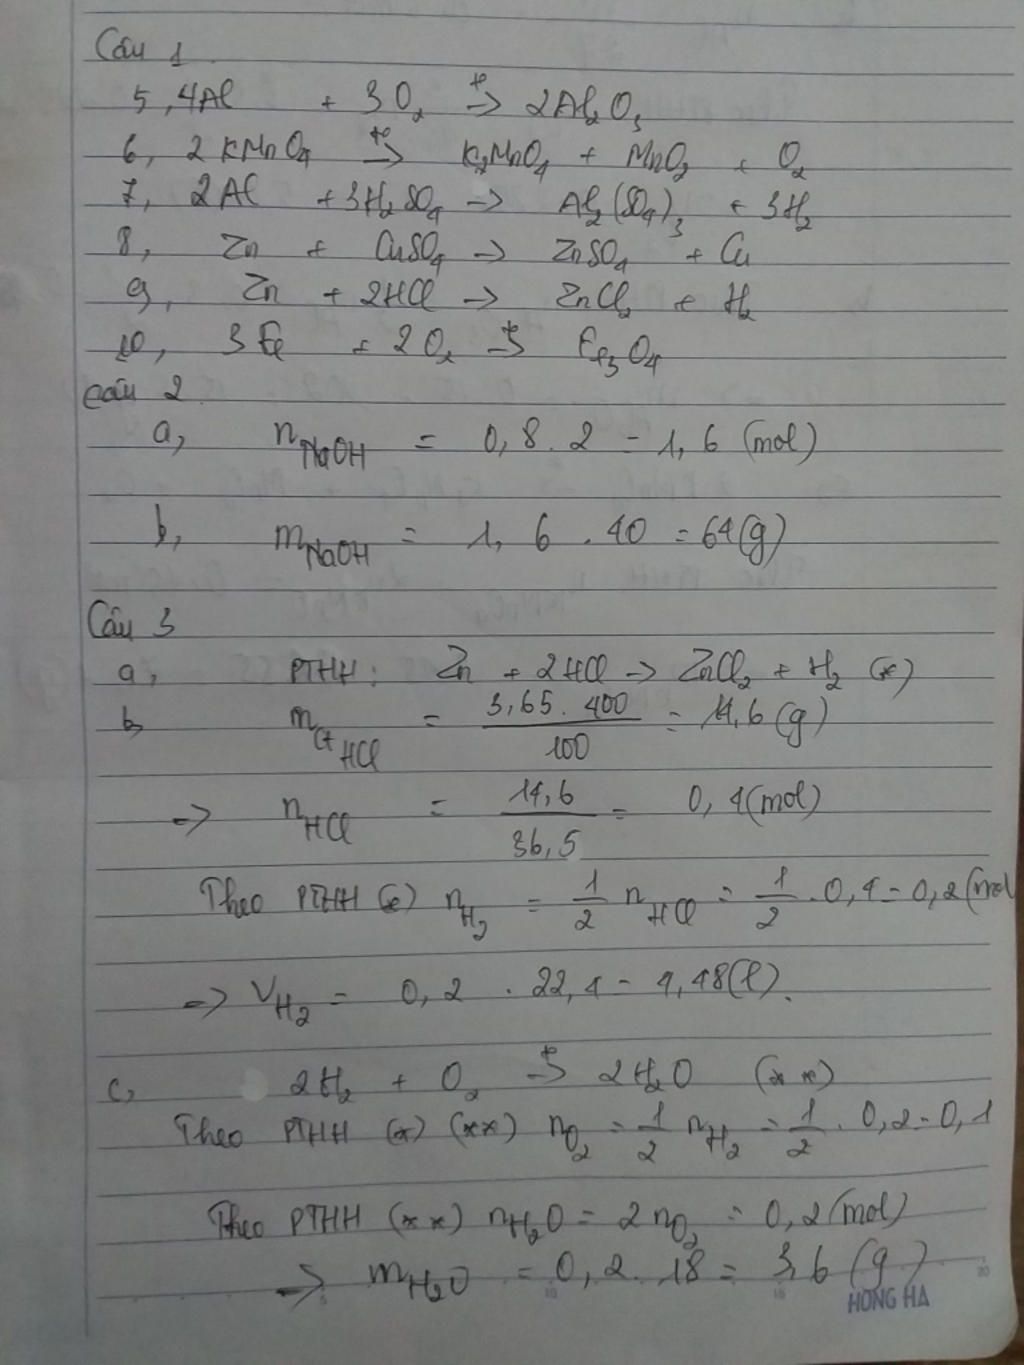 Câu 1
5, 4Al + 3O₂ t°→ 2Al₂O₃
6, 2KMnO₄ t°→ K₂MnO₄ + MnO₂ + O₂
7, 2Al + 3H₂SO₄ → Al₂(SO₄)₃ + 3H₂
8, Zn + CuSO₄ → ZnSO₄ + Cu
9, Zn + 2HCl → ZnCl₂ + H₂
10, 3Fe + 2O₂ t°→ Fe₃O₄
Câu 2
a, n NaOH = 0,8 . 2 = 1,6 (mol)
b, m NaOH = 1,6 . 40 = 64 (g)
Câu 3
a, PTHH: Zn + 2HCl → ZnCl₂ + H₂ (*)
b, m ct HCl = 3,65 . 400 / 100 = 14,6 (g)
=> n HCl = 14,6 / 36,5 = 0,4 (mol)
Theo PTHH (*) n H₂ = 1/2 n HCl = 1/2 . 0,4 = 0,2 (mol
=> V H₂ = 0,2 . 22,4 = 4,48 (l).
c, 2H₂ + O₂ t°→ 2H₂O (**)
Theo PTHH (*) (**) n O₂ = 1/2 n H₂ = 1/2 . 0,2 = 0,1
Theo PTHH (**) n H₂O = 2 n O₂ = 0,2 (mol)
=> m H₂O = 0,2 . 18 = 3,6 (g)
5 10 15 20
HONG HA